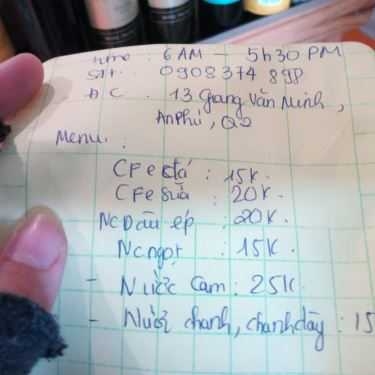 time : 6 AM — 5h30 PM
SĐT : 0908 374 898
ĐC : 13 Giang Văn Minh,
An Phú, Q2
Menu :
CFe đá : 15K.
CFe sữa : 20K.
NC Dâu ép : 20K.
NC ngọt : 15K.
- Nước Cam : 25K.
- Nước chanh, chanh dây : 15